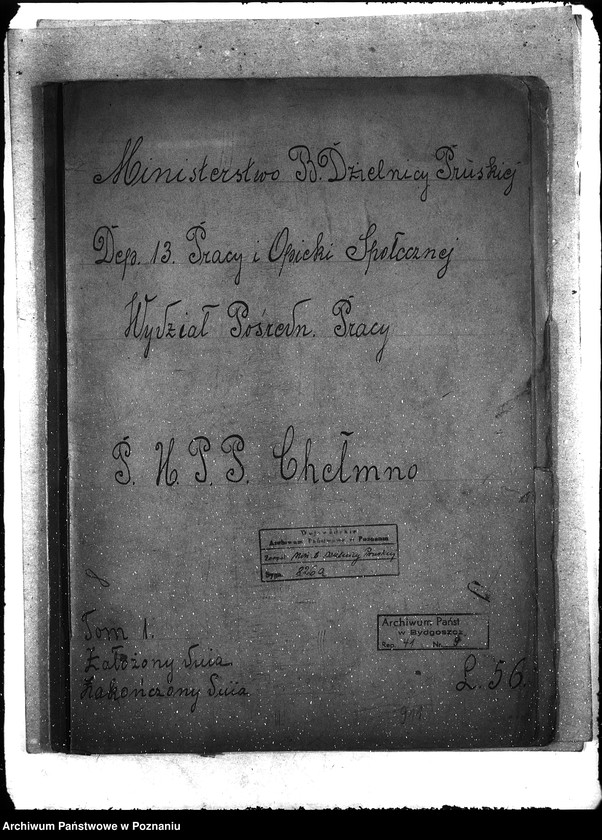 Ministerstwo B. Dzielnicy Pruskiej
Dep. 13. Pracy i Opieki Społecznej
Wydział Pośredn. Pracy
P. U. P. P. Chełmno
Wojewódzkie
Archiwum Państwowe w Poznaniu
Zespół Min. B. Dzielnicy Pruskiej
Sygn. 226a
Archiwum Państ
w Bydgoszcz
Rep. 41 Nr. 8
Tom 1.
Założony dnia
Zakończony dnia
L. 56.
911
Archiwum Państwowe w Poznaniu